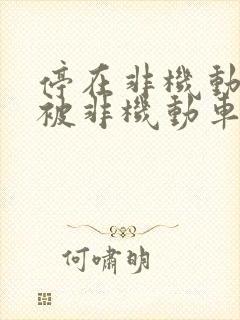 停在非機動
被非機動車
何嘯明